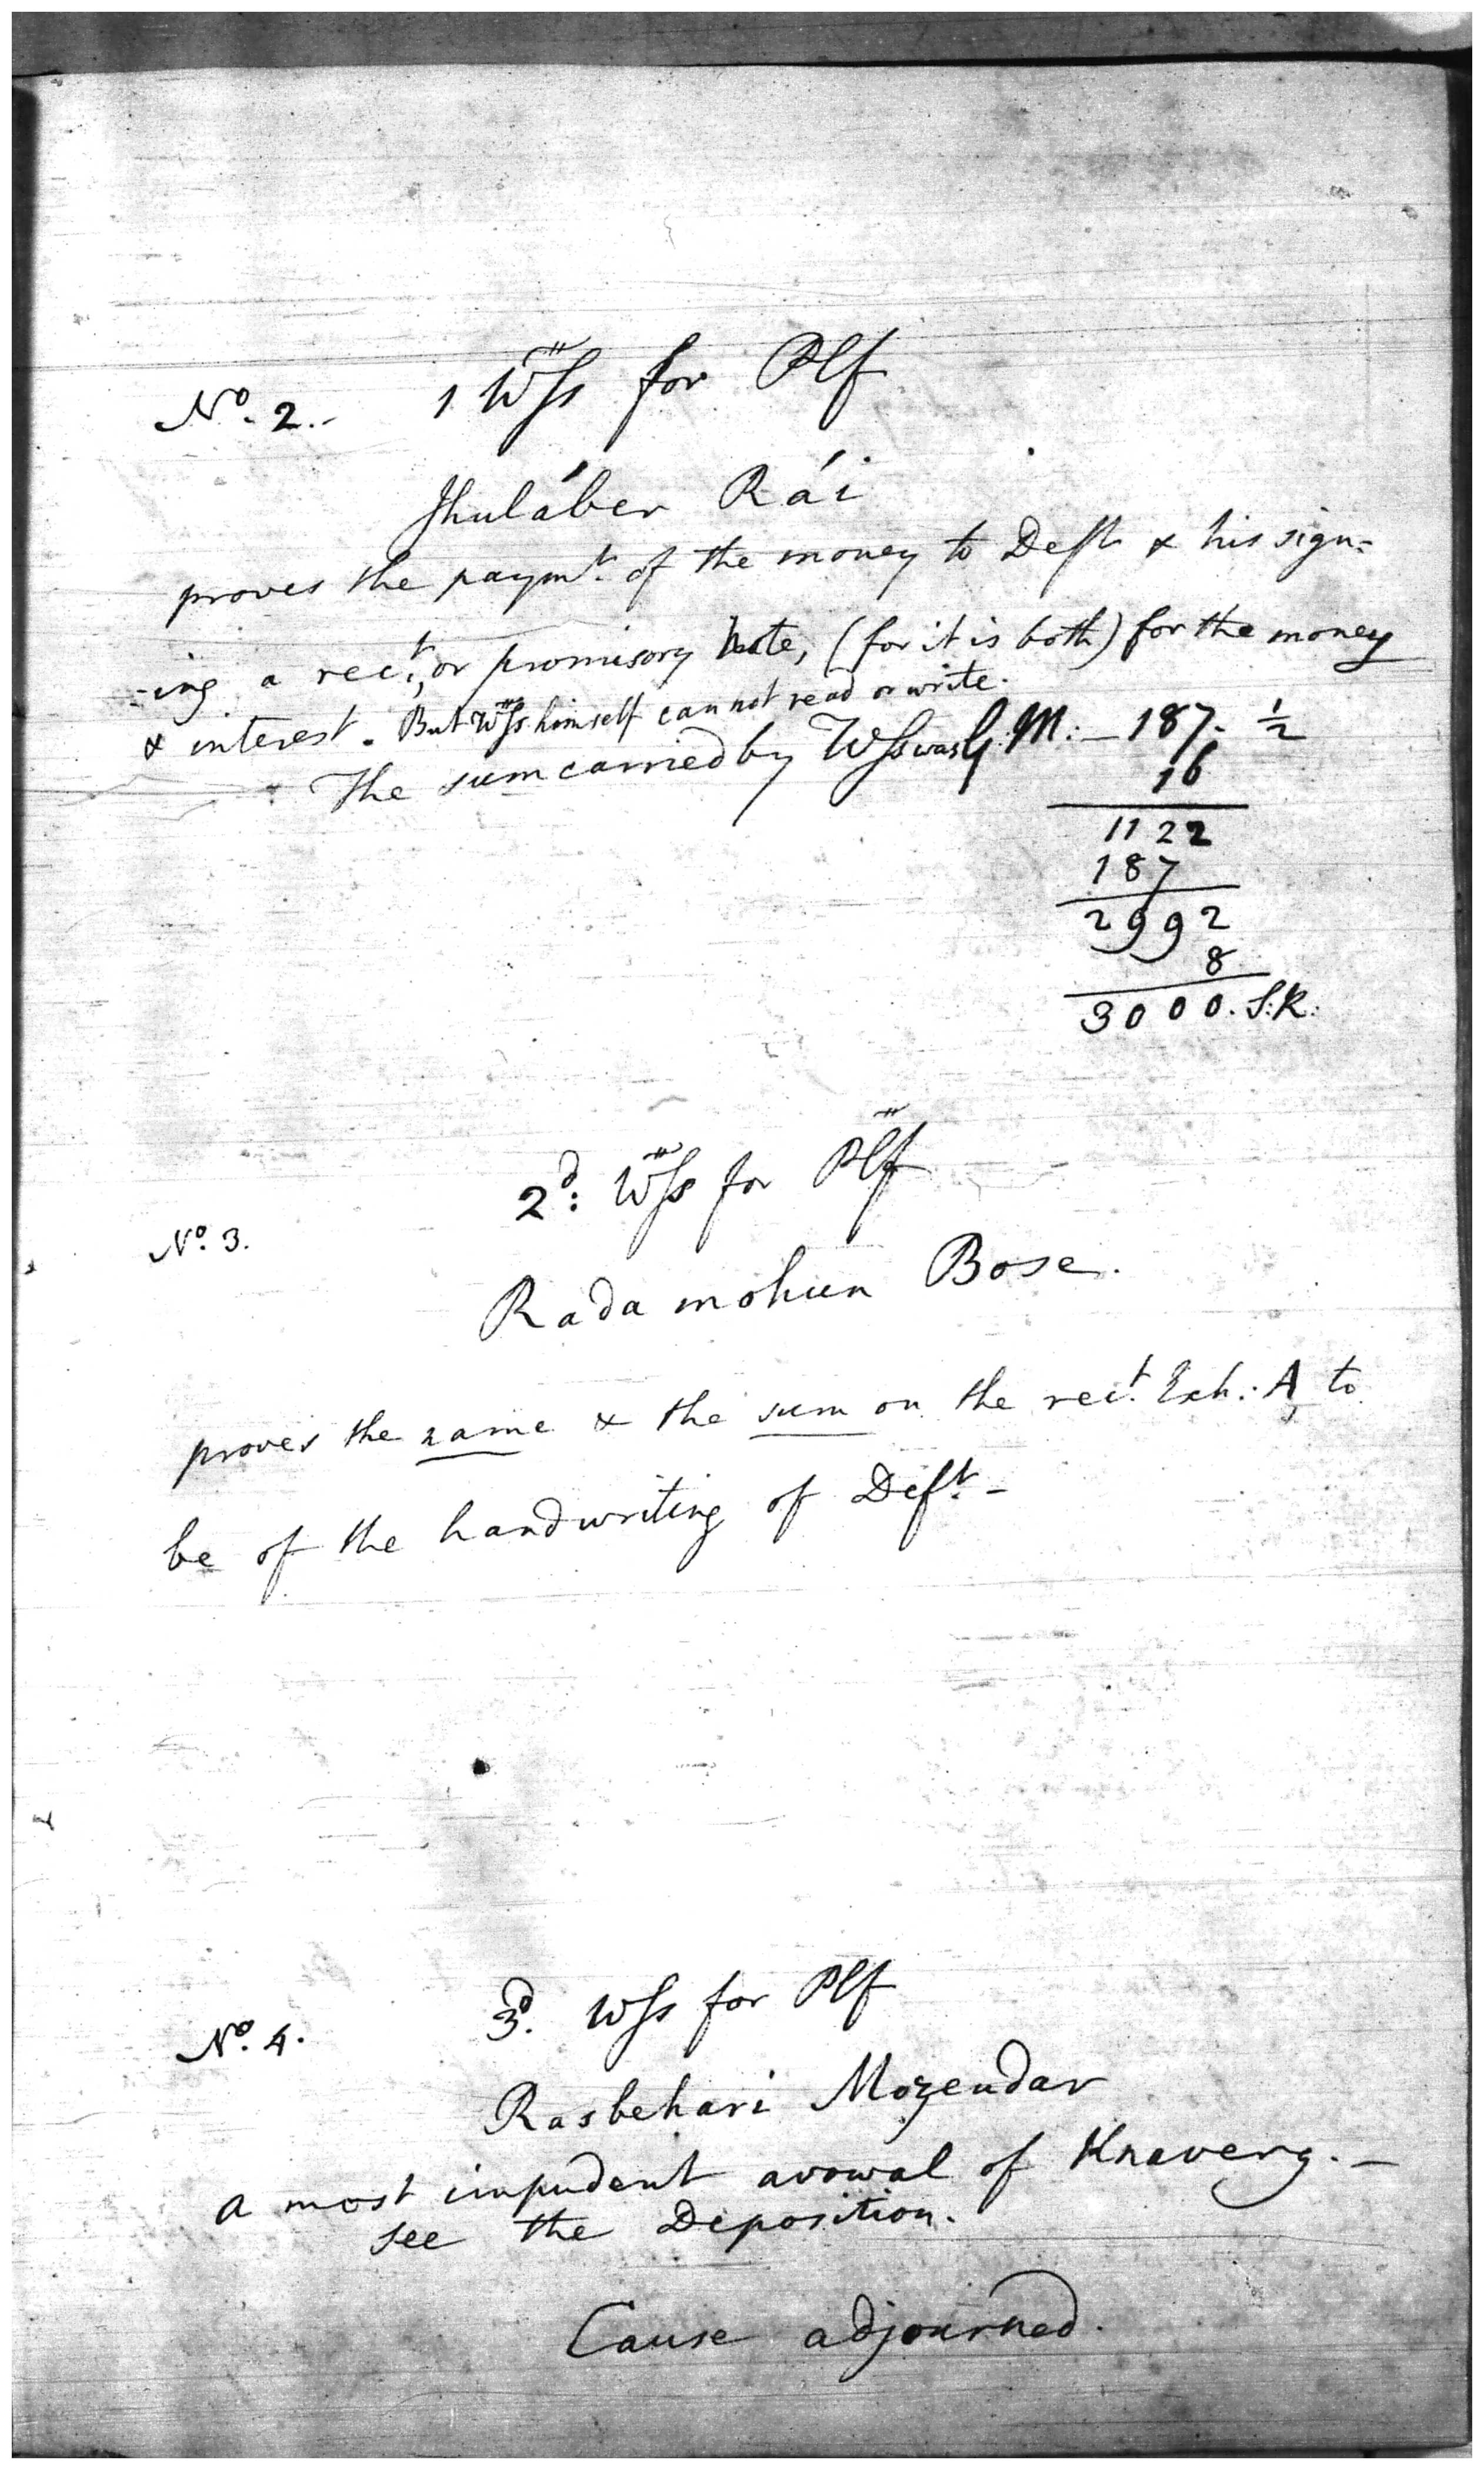 No. 2.- 1 Wss for Plf
Jhuláber Rái
proves the paymt. of the money to Deft & his sign-
-ing a rect., or promisory Note, (for it is both) for the money
& interest. But Wss himself cannot read or write.
The sum carried by Wss was G. M: - 187. 1/2
16
1122
187
2992
8
3000. S:R:
2d: Wss for Plf
No. 3.
Rada mohun Bose.
proves the name & the sum on the rect. Exh: A, to
be of the handwriting of Deft. -
3d. Wss for Plf
No. 4.
Rasbehari Mozendar
a most impudent avowal of Knavery. -
see the Deposition.
Cause adjourned.